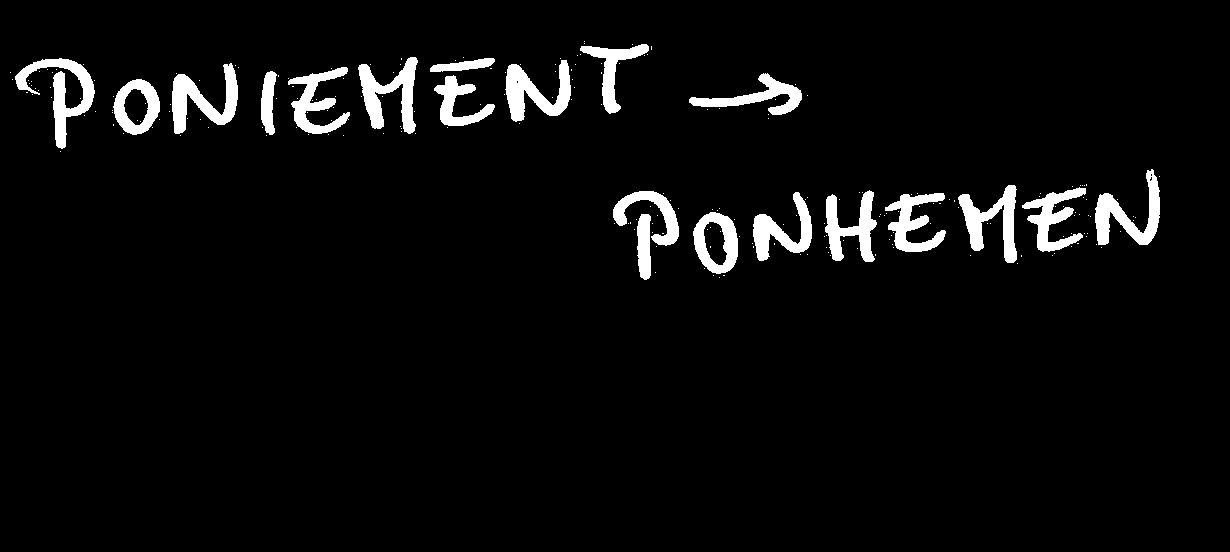 PONIEMENT →
PONHEMEN